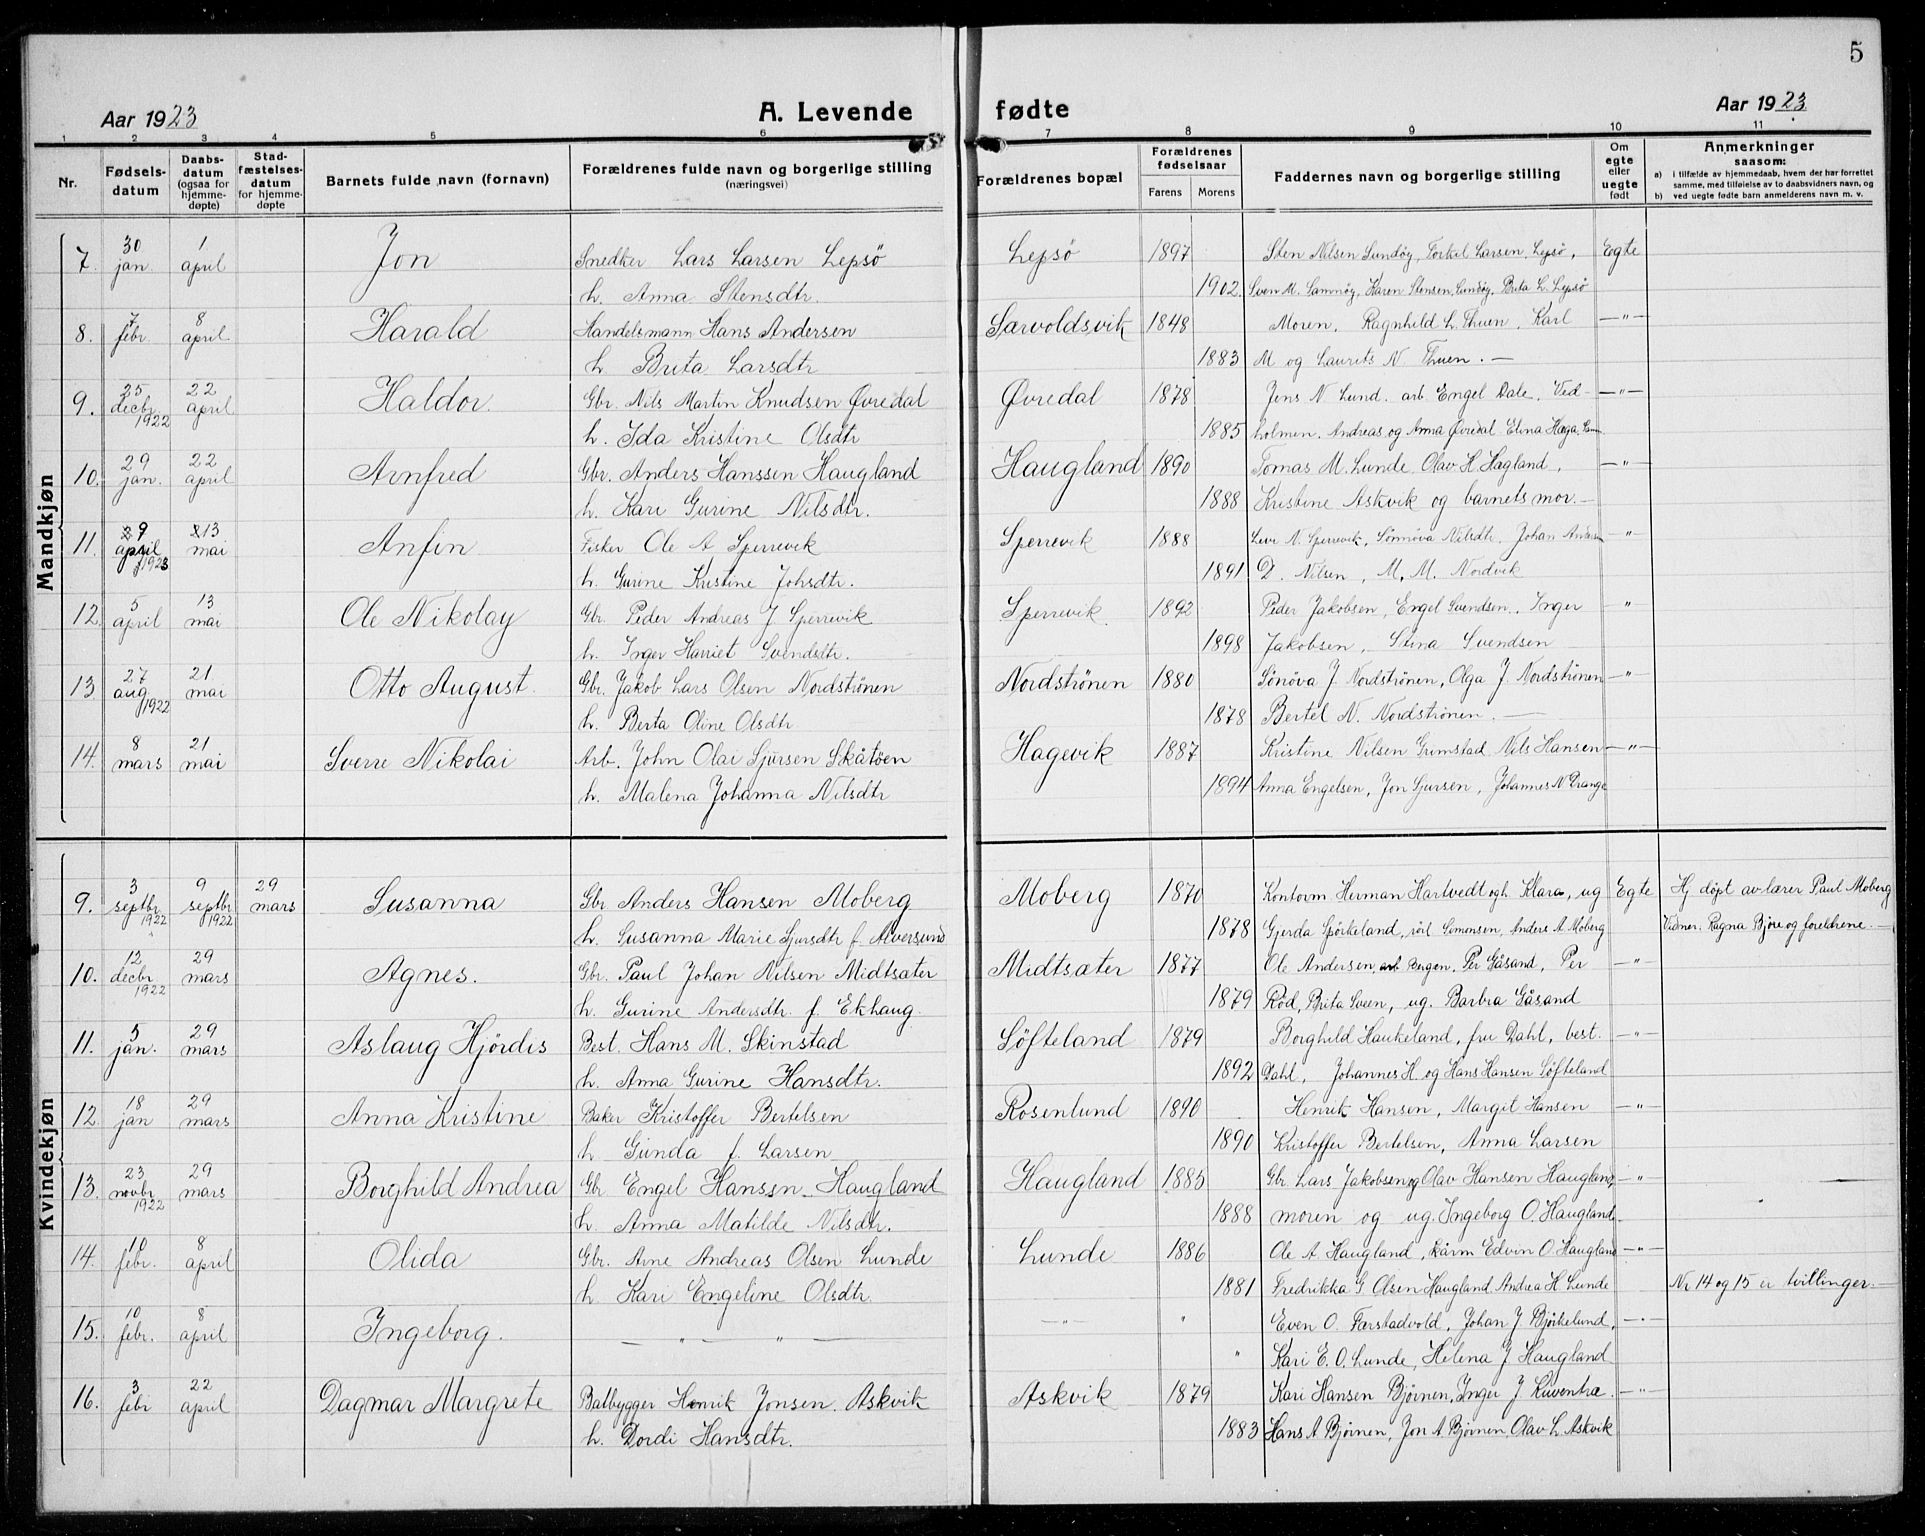 5
Aar 1923 A. Levende fødte Aar 1923
1 2 3 4 5 6 7 8 9 10 11
Nr. Fødsels-datum Daabs-datum (ogsaa for hjemme-døpte) Stad-fæstelses-datum for hjemme-døpte Barnets fulde navn (fornavn) Forældrenes fulde navn og borgerlige stilling (næringsvei) Forældrenes bopæl Forældrenes fødselsaar Farens Morens Faddernes navn og borgerlige stilling Om egte eller uegte født Anmerkninger saasom:
a) i tilfælde av hjemmedaab, hvem der har forrettet samme, med tilføielse av to daabsvidners navn, og
b) ved uegte fødte barn anmelderens navn m. v.
Mandkjøn
7. 30 jan. 1 april Jon Snedker Lars Larsen Lepsö Lepsö 1897 Sten Nilsen Sundöy, Torkel Larsen, Lepsö, Egte
h. Anna Stensdtr. 1902. Sven M. Samnöy, Karen Stensen, Sundöy, Brita L. Lepsö
8. 7 febr. 8 april Harald Handelsmann Hans Andersen Særvoldsvik 1848 Moren, Ragnhild L. Thuen, Karl —"—
h. Brita Larsdtr 1883 M og Laurits N. Thuen. —
9. 25 decbr 1922 22 april Haldor. Gbr. Nils Martin Knudsen Øvredal Øvredal 1878 Jens N. Lund. arb. Engel Dale, Ved- —"—
h. Ida Kristine Olsdtr 1885 holmen, Andreas og Anna Øvredal Elina Haga
10. 29 jan. 22 april Arnfred Gbr. Anders Hanssen Haugland Haugland 1890 Tomas M. Lunde, Olav H. Hagland, —"—
h. Kari Gurine Nilsdtr. 1888 Kristine Askvik og barnets mor. —
11. 9 april 1923 13 mai Anfin Fisker Ole A Sperrevik Sperrevik 1888 N. Sperrevik, Sönnöva Nilsdtr. Johan Andersen "
h. Gurine Kristine Johsdtr. 1891 D. Nilsen, M. M. Nordvik
12. 5 april 13 mai Ole Nikolay Gbr. Peder Andreas J Sperrevik Sperrevik. 1892 Peder Jakobsen, Engel Svendsen, Inger "
h. Inger Harriet Svendsdtr. 1898 Jakobsen, Stina Svendsen
13 27 aug 1922 21 mai Otto August. Gbr. Jakob Lars Olsen Nordströnen Nordströnen 1880 Sönöva J. Nordströnen, Olga J. Nordströnen —"—
h. Berta Oline Olsdtr 1878 Bertel N. Nordströnen. —
14. 8 mars 21 mai Sverre Nikolai Arb. John Olai Sjursen Skåtöen Hagevik 1887 Kristine Nilsen Grimstad Nils Hansen —"—
h. Malena Johanna Nilsdtr 1894 Anna Engelsen, Jon Sjursen, Johannes N Drange
Kvindekjøn
9. 3 septbr 1922 9 septbr 1922 29 mars Susanna Gbr Anders Hansen Moberg Moberg 1870 Kontorm Herman Hartvedt og h. Klara, ug Egte Hj döpt av lærer Paul Moberg
h. Susanna Marie Sjursdtr f. Alversund 1878 Gjerda Spörkeland, Simonsen, Anders A. Moberg Vidner: Ragna Björe og foreldrene. —
10. 12 decbr 1922 29 mars Agnes. Gbr. Paul Johan Nilsen Midtsæter Midtsæter 1877 Ole Andersen, arb Bergen. Per Gåsand, Per —"—
h. Gurine Andersdtr. f. Ekhaug. 1879 Röd, Brita Sveen, ug. Barbra Gåsand
11. 5 jan. 29 mars Aslaug Hjördis Best. Hans M. Skinstad Söfteland 1879 Borghild Haukeland, fru Dahl, best. —"—
h. Anna Gurine Hansdtr. 1892 Dahl, Johannes H. og Hans Hansen Söfteland
12. 18 jan 29 mars Anna Kristine Baker Kristoffer Bertelsen Rosenlund 1890 Henrik Hansen, Margit Hansen —"—
h Gunda f. Larsen 1890 Kristoffer Bertelsen, Anna Larsen
13. 23 novbr 1922 29 mars Borghild Andrea Gbr Engel Hanssen Haugland Haugland 1885 Gbr. Lars Jakobsen, og Olav Hansen Haugland, —"—
h. Anna Matilde Nilsdtr. 1888 moren og ug. Ingeborg O. Haugland.
14. 10 febr. 8 april Olida Gbr. Arne Andreas Olsen Lunde Lunde 1886 Ole A. Haugland, Edvin O. Haugland —"—
h. Kari Engeline Olsdtr. 1881 Fredrikka G Olsen Haugland Andrea H Lunde Nr 14 og 15 er tvillinger. —
15. 10 febr. 8 april Ingeborg. — " — " — —"— " Even O. Færstadvold, Johan J Björkelund, —"—
" Kari E. O. Lunde, Helena J Haugland
16. 3 febr 22 april Dagmar Margrete Båtbygger Henrik Jonsen. Askvik Askvik 1879 Kari Hansen Björnen, Inger J. Kuventræ. —"—
h. Dordi Hansdtr. 1883 Hans A Björnen, Jon A Björnen, Olav L. Askvik